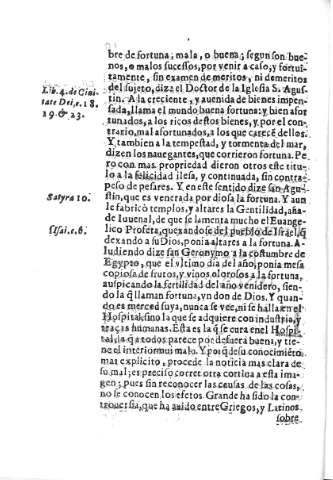 bre de fortuna; mala, o buena; segun son bue-
nos, o malos sucessos, por venir a caso, y fortui-
tamente, sin examen de meritos, ni demeritos
Lib. 4. de Civi
del sujeto, dize el Doctor de la Iglesia S. Agus-
tate Dei, c. 18.
tin. A la creciente, y auenida de bienes impen-
19. & 23.
sada, llama el mundo buena fortuna: y bien afor
tunados, a los ricos destos bienes, y por el con-
trario, mal afortunados, a los que carecē dellos.
Y tambien a la tempestad, y tormenta del mar,
dizen los nauegantes, que corrieron fortuna. Pe-
ro con mas propriedad dieron otros este titu-
lo a la felicidad ilesa, y continuada, sin contra-
peso de pesares. Y en este sentido dize san Agus-
Satyra 10.
tin, que es venerada por diosa la fortuna. Y aun
le fabricò templos, y altares la Gentilidad, aña-
de Iuuenal, de que se lamenta mucho el Euange-
Esai. c. 6.
lico Profeta, quexandose del pueblo de Israel, q̄
dexando a su Dios, ponia altares a la fortuna. A-
ludiendo dize san Geronymo a la costumbre de
Egypto, que el vltimo dia del año, ponia mesa
copiosa de frutos, y vinos olorosos a la fortuna,
auspicando la fertilidad del año venidero, sien-
do la q̄ llaman fortuna, vn don de Dios. Y quan-
do es merced suya, nunca se vee, ni se halla en el
Hospital, sino la que se adquiere con industria, y
traças humanas. Esta es la q̄ se cura en el Hospi-
tal, la q̄ a todos parece por defuera buena, y tie-
ne el interior mui malo. Y por q̄ de su conocimiēto
mas explicito, procede la noticia mas clara de
su mal; es preciso correr otra cortina a esta ima-
gen; pues sin reconocer las causas de las cosas,
no se conocen los efetos. Grande ha sido la con-
trouersia, que ha auido entre Griegos, y Latinos
sobre